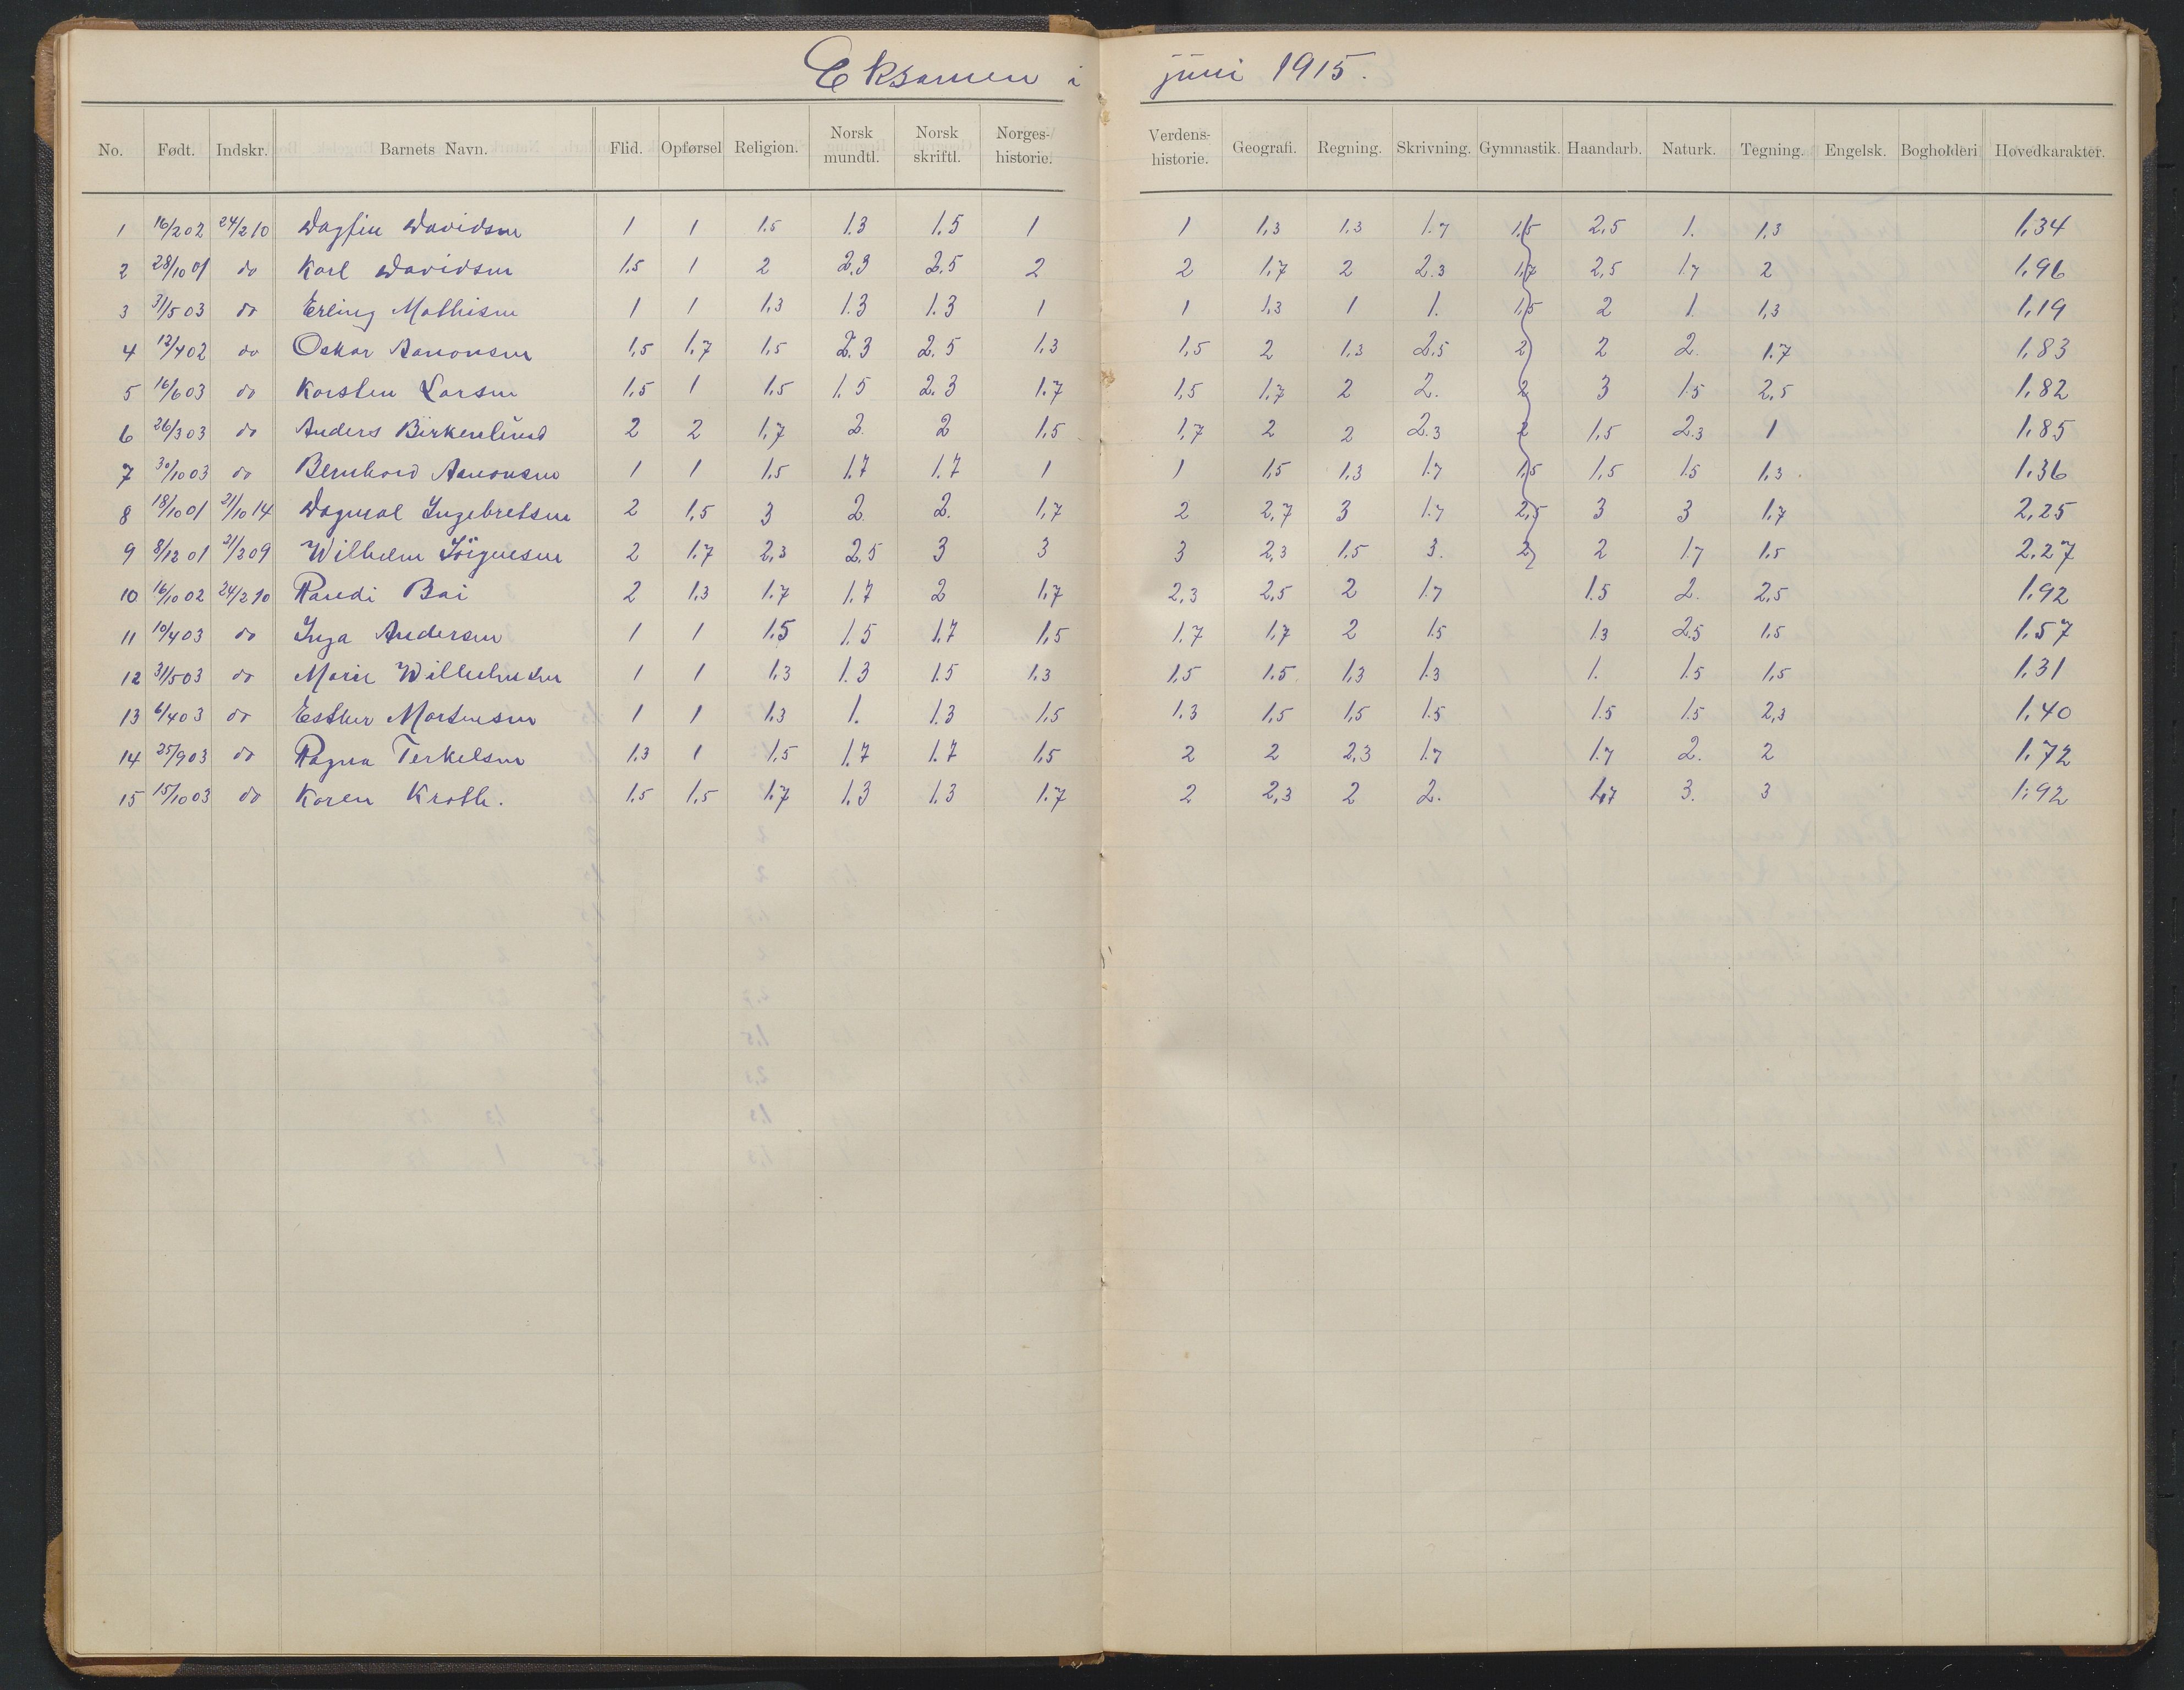 Eksamen i juni 1915.
No. Født. Indskr. Barnets Navn. Flid. Opførsel Religion. Norsk mundtl. Norsk skriftl. Norges-historie. Verdens-historie. Geografi. Regning. Skrivning. Gymnastik. Haandarb. Naturk. Tegning. Engelsk. Bogholderi Hovedkarakter.
1 16/2 02 24/2 10 Dagfin Davidsen 1 1 1.5 1.3 1.5 1 1 1,3 1.3 1.7 1,5 2,5 1. 1,3 1,34
2 28/10 01 do Karl Davidsen 1.5 1 2 2.3 2.5 2 2 1.7 2 2.3 1,7 2,5 1.7 2 1,96
3 31/5 03 do Erling Mathisen 1 1 1,3 1.3 1.3 1 1 1,3 1 1. 1,5 2 1. 1,3 1,19
4 12/4 02 do Oskar Aanonsen 1,5 1.7 1,5 2.3 2.5 1.3 1,5 2 1.3 2.5 2 2 2. 1.7 1,83
5 16/6 03 do Karsten Larsen 1,5 1 1.5 1.5 2.3 1.7 1,5 1.7 2 2. 2 3 1.5 2,5 1,82
6 26/3 03 do Anders Birkenlund 2 2 1.7 2. 2 1.5 1.7 2 2 2.3 2 1,5 2.3 1 1,85
7 30/10 03 do Bernhard Aanonsen 1 1 1.5 1.7 1.7 1 1 1.5 1.3 1.7 1,5 1,5 1.5 1,3. 1,36
8 18/10 01 21/10 14 Dagmal Ingebretsen 2 1,5 3 2. 2. 1,7 2 2,7 3 1.7 2,5 3 3 1.7 2,25
9 8/12 01 21/2 09 Wilhelm Jörgensen 2 1.7 2,3 2.5 3 3 3 2,3 1.5 3. 2 2 1.7 1,5 2,27
10 16/10 02 24/2 10 Randi Bai 2 1.3 1.7 1.7 2 1.7 2,3 2,5 2 1.7 1.5 2. 2,5 1,92
11 10/4 03 do Inga Andersen 1 1 1.5 1.5 1.7 1,5 1.7 1,7 2 1.5 1.3 2.5 1,5 1,57
12 31/5 03 do Marie Wilhelmsen 1 1 1,3 1.3 1.5 1.3 1,5 1.5 1,3 1.3 1. 1.5 1,5 1,31
13 6/4 03 do Esther Mortensen 1 1 1,3 1. 1.3 1,5 1.3 1,5 1,5 1.5 1.5 1.5 2,3 1,40
14 25/9 03 do Ragna Terkelsen 1.3 1 1,5 1.7 1.7 1,5 2 2 2,3 1.7 1.7 2. 2 1,72
15 15/10 03 do Karen Kroth. 1.5 1,5 1.7 1.3 1.3 1.7 2 2,3 2 2. 1,7 3. 3 1,92